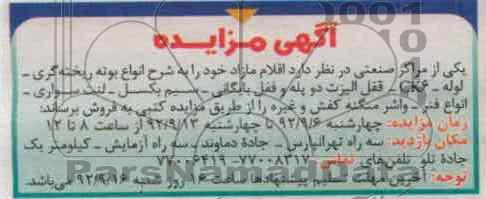 آگهی مزایده
یکی از مراکز صنعتی در نظر دارد اقلام مازاد خود را به شرح انواع بوته ریخته‌گری -
لوله - CKF - قفل الیزت دو پله و قفل بایگانی - سیم بکسل - لنت سواری -
انواع فنر - واشر منگنه کفش و غیره را از طریق مزایده کتبی به فروش برساند:
زمان مزایده: چهارشنبه ۹۲/۹/۶ تا چهارشنبه ۹۲/۹/۱۳ از ساعت ۸ تا ۱۲
مکان بازدید: سه راه تهرانپارس - جادهٔ دماوند - سه راه آزمایش - کیلومتر یک
جادهٔ تلو تلفن‌های تماس: ۷۷۰۰۸۲۱۷ - ۷۷۰۰۶۴۱۹
توجه: آخرین مهلت تسلیم پیشنهادها ساعت ۱۶ روز شنبه ۹۲/۹/۱۶ می‌باشد.
ParsNamadData